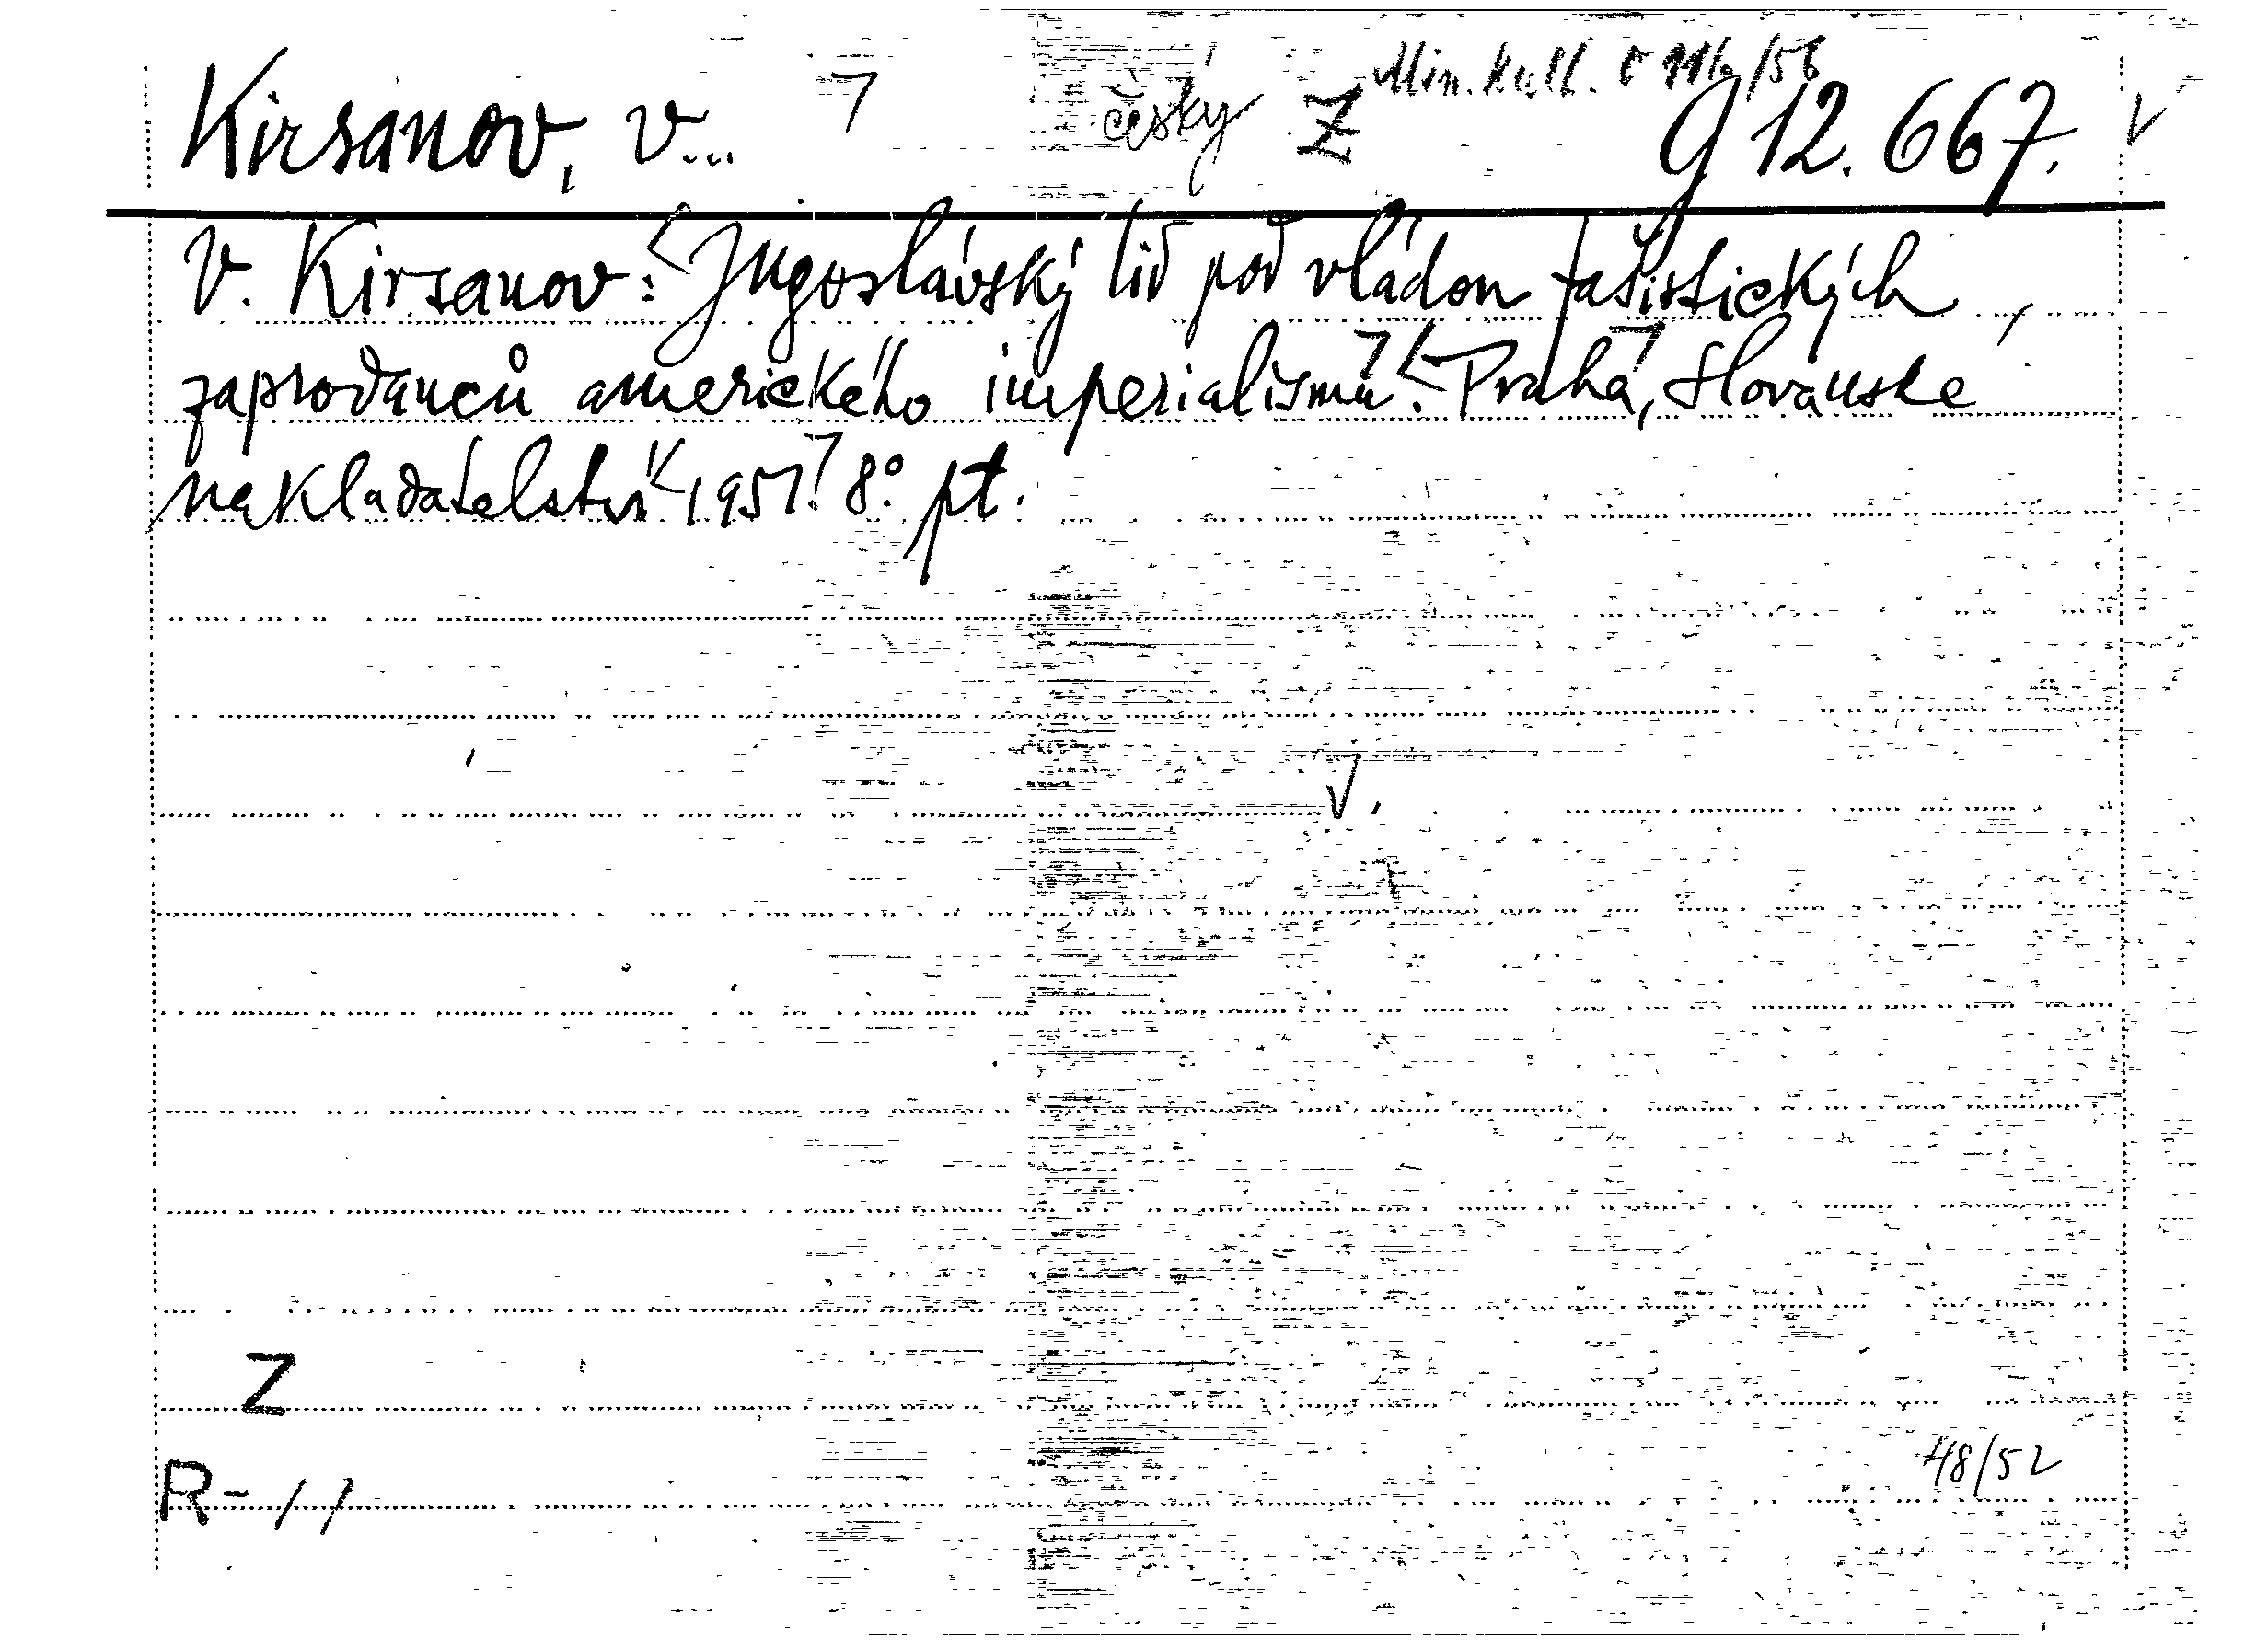 Min. kult.
Kirsanov, V... česky Z G 12.667. V
V. Kirsanov: Jugoslávský lid pod vládou fašistických
zaprodanců amerického imperialismu. Praha, Slovanské
nakladatelství 1951. 8° pt.
Z
48/52
R-11